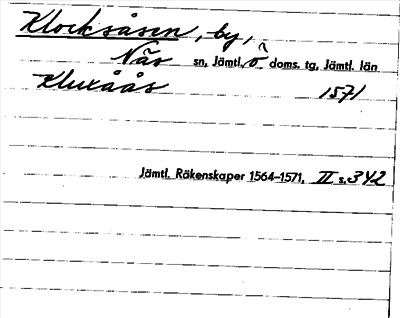 Klocksåsen, by,
Näs sn, Jämtl. ö doms. tg, Jämtl. län
Kluxåås 1571
Jämtl. Räkenskaper 1564-1571, II s. 342